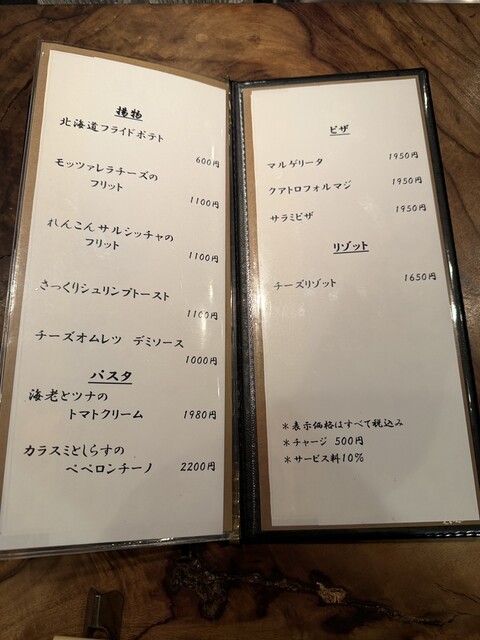 揚物
北海道フライドポテト
600円
モッツァレラチーズの
フリット
1100円
れんこんサルシッチャの
フリット
1100円
さっくりシュリンプトースト
1100円
チーズオムレツ デミソース
1000円
パスタ
海老とツナの
トマトクリーム 1980円
カラスミとしらすの
ペペロンチーノ 2200円
ピザ
マルゲリータ 1950円
クアトロフォルマジ 1950円
サラミピザ 1950円
リゾット
チーズリゾット 1650円
＊表示価格はすべて税込み
＊チャージ 500円
＊サービス料10%